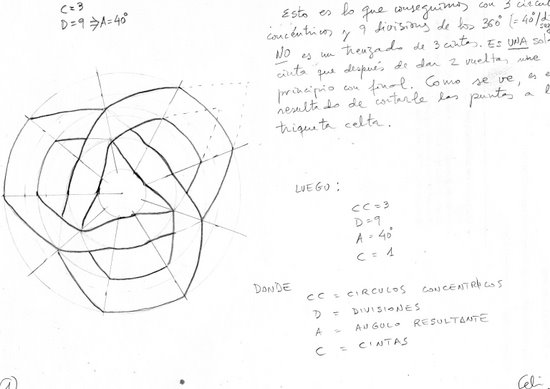 C=3
D=9 ⇒ A=40°
Esto es lo que conseguimos con 3 círcul
concéntricos y 9 divisiones de los 360° (=40°/di
NO es un trenzado de 3 cintas. Es UNA sola
cinta que después de dar 2 vueltas une
principio con final. Como se ve, es e
resultado de cortarle las puntas a l
triqueta celta.
LUEGO:
CC = 3
D = 9
A = 40°
C = 1
DONDE
CC = CIRCULOS CONCENTRICOS
D = DIVISIONES
A = ANGULO RESULTANTE
C = CINTAS
1